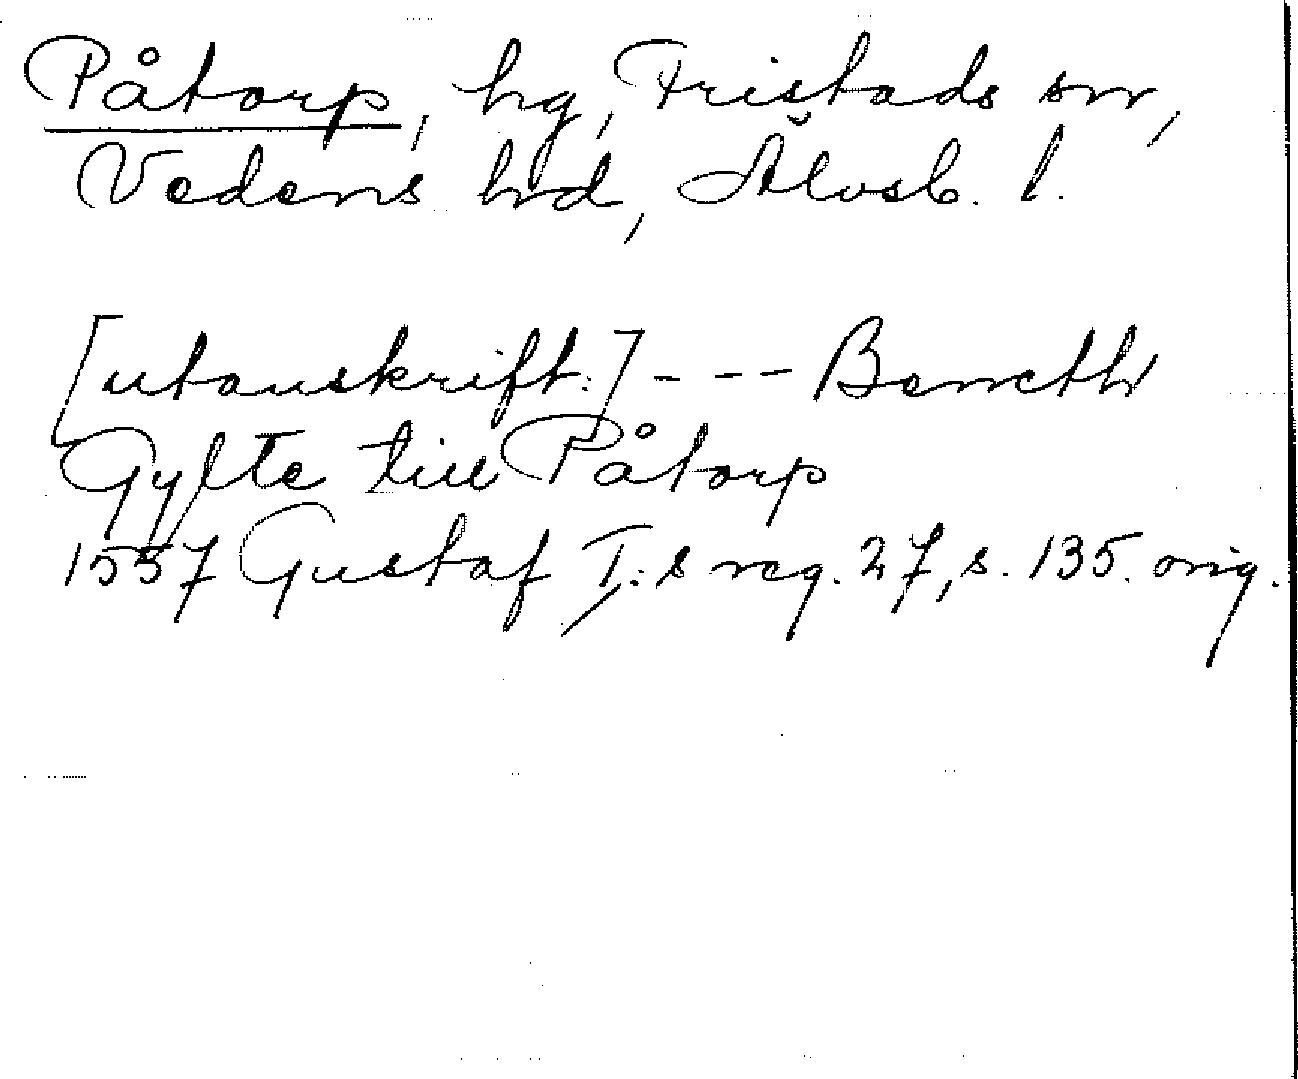 Påtorp, hg, Fristads sn,
Vedens hd, Älvsb. l.
[utanskrift:] - - - Bencth
Gylte till Påtorp
1557 Gustaf I:s reg. 27, s. 135. orig.